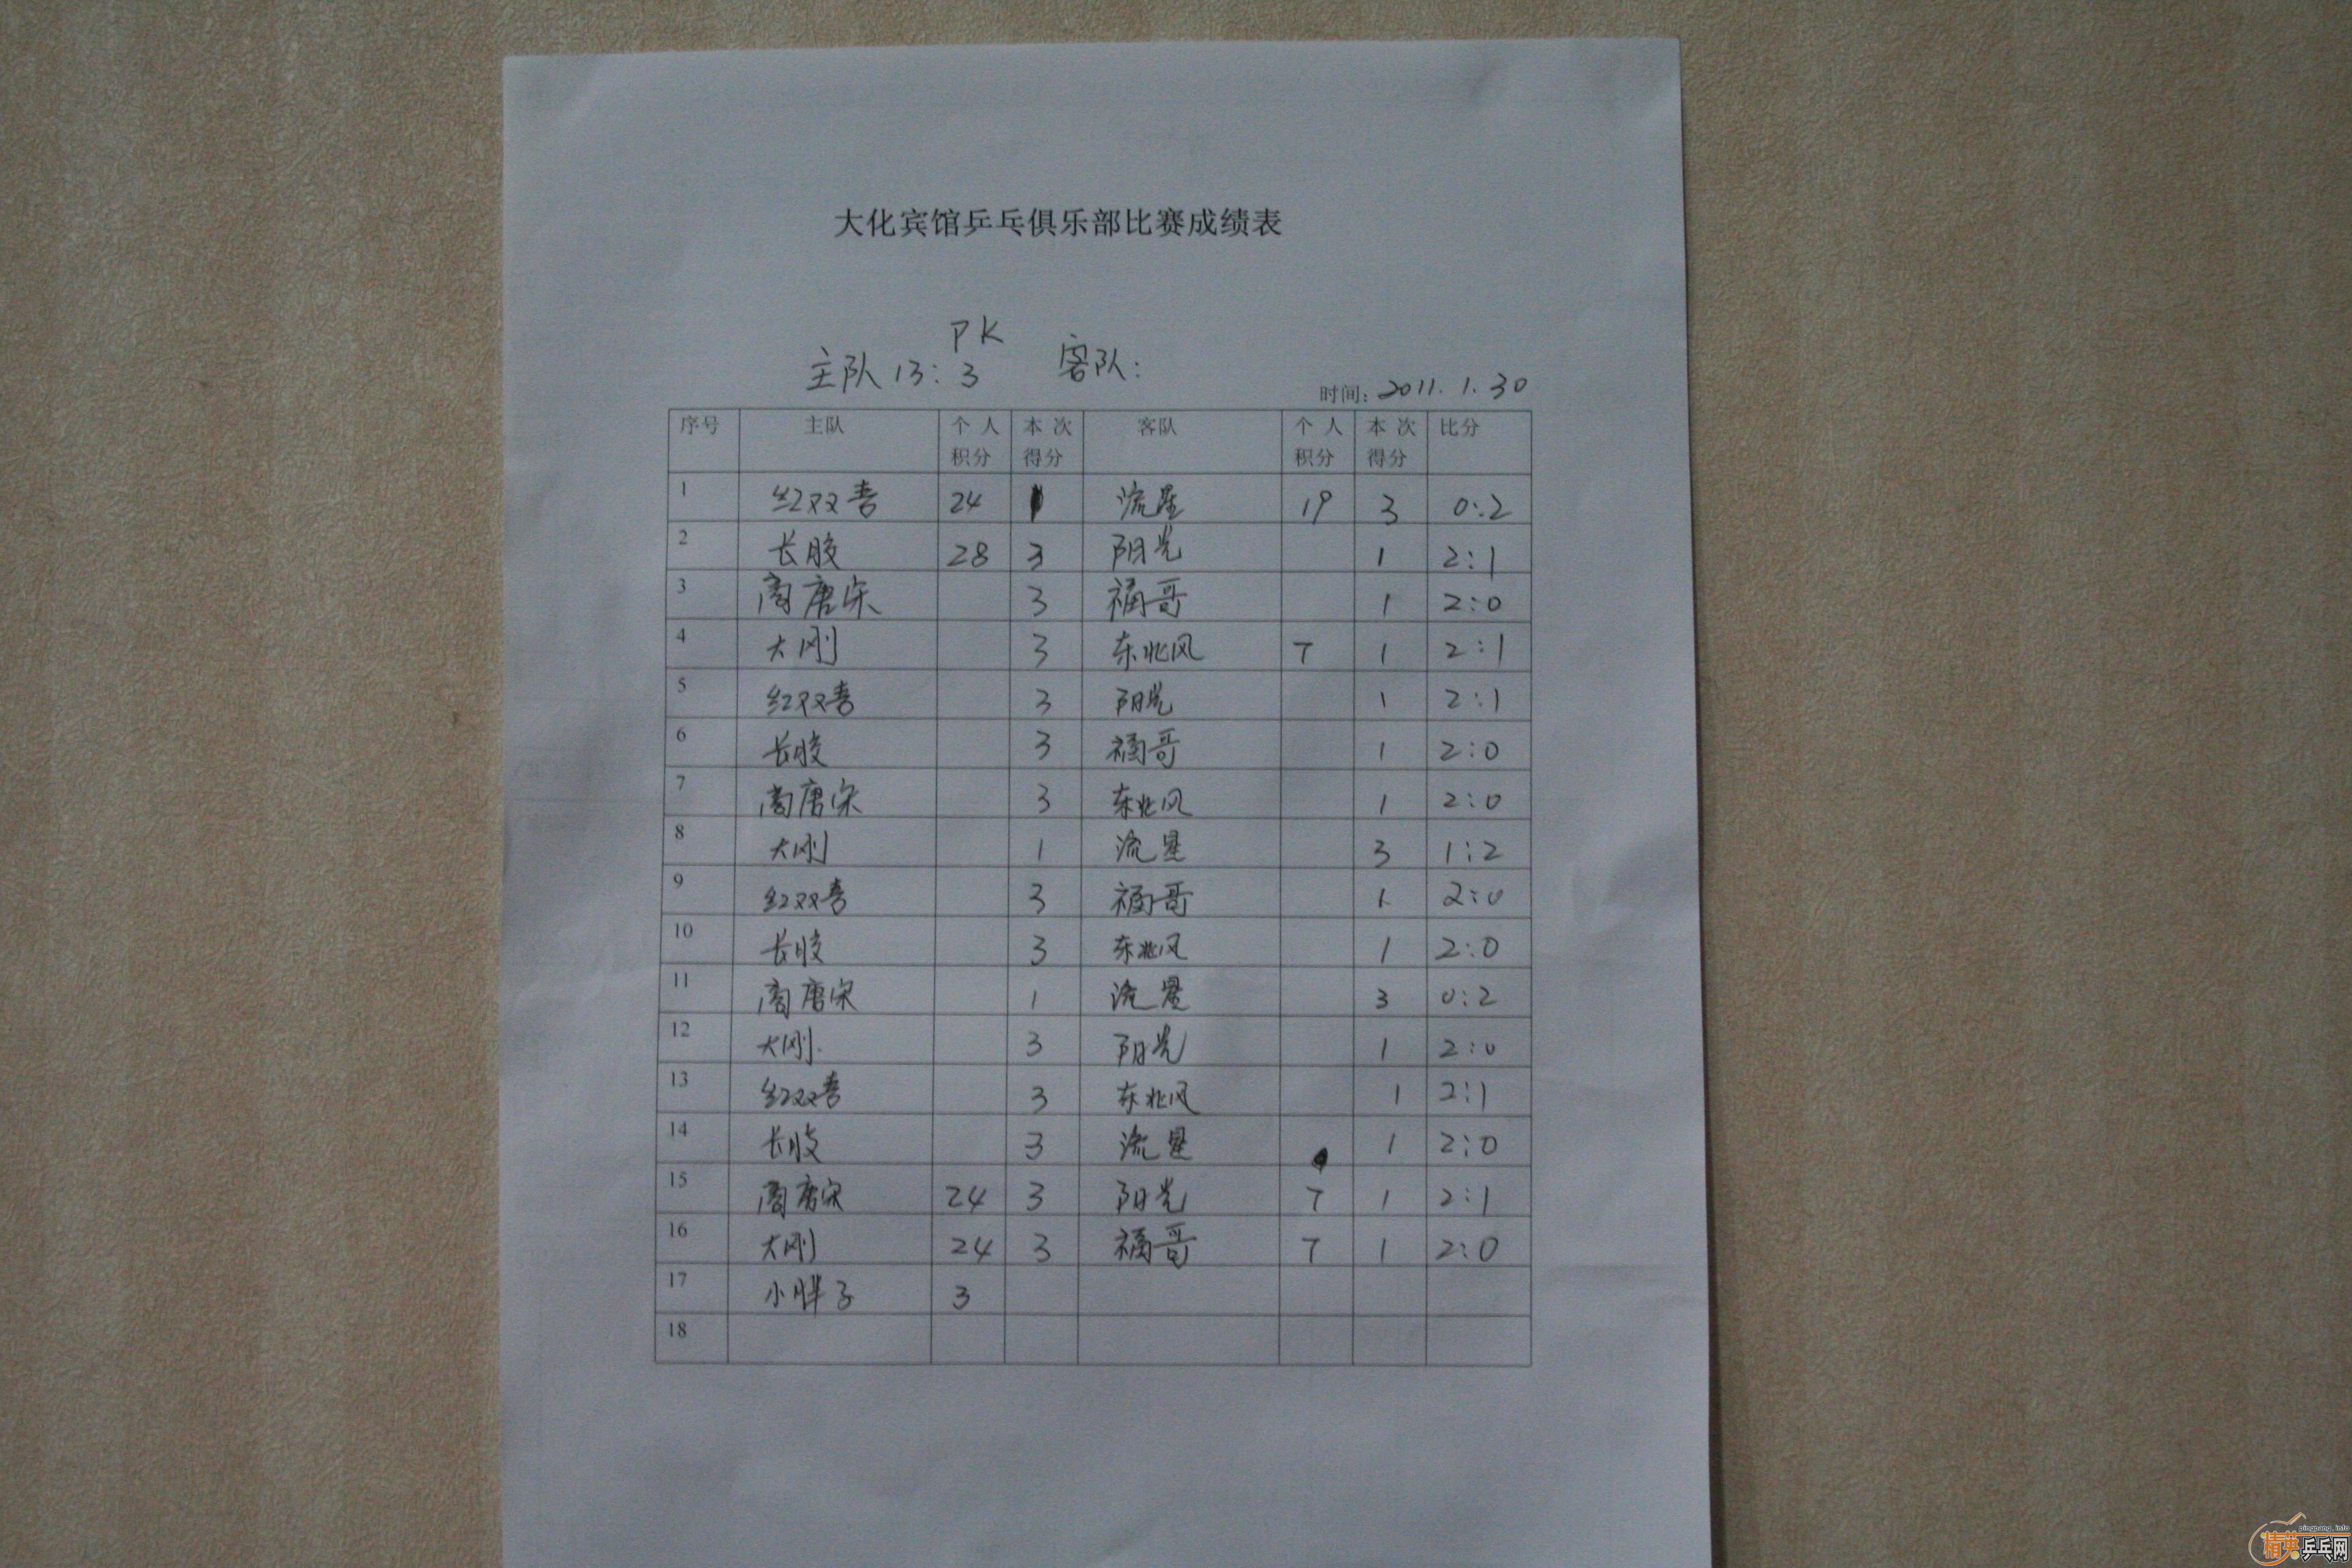 大化宾馆乒乓俱乐部比赛成绩表
PK
主队 13:3 客队:
时间: 2011.1.30
序号 主队 个人积分 本次得分 客队 个人积分 本次得分 比分
1 红双喜 24 1 流星 19 3 0:2
2 长胶 28 3 阳光 1 2:1
3 商唐宋 3 福哥 1 2:0
4 大刚 3 东北风 7 1 2:1
5 红双喜 3 阳光 1 2:1
6 长胶 3 福哥 1 2:0
7 商唐宋 3 东北风 1 2:0
8 大刚 1 流星 3 1:2
9 红双喜 3 福哥 1 2:0
10 长胶 3 东北风 1 2:0
11 商唐宋 1 流星 3 0:2
12 大刚 3 阳光 1 2:0
13 红双喜 3 东北风 1 2:1
14 长胶 3 流星 1 2:0
15 商唐宋 24 3 阳光 7 1 2:1
16 大刚 24 3 福哥 7 1 2:0
17 小胖子 3
18
pingpang.info
精英乒乓网